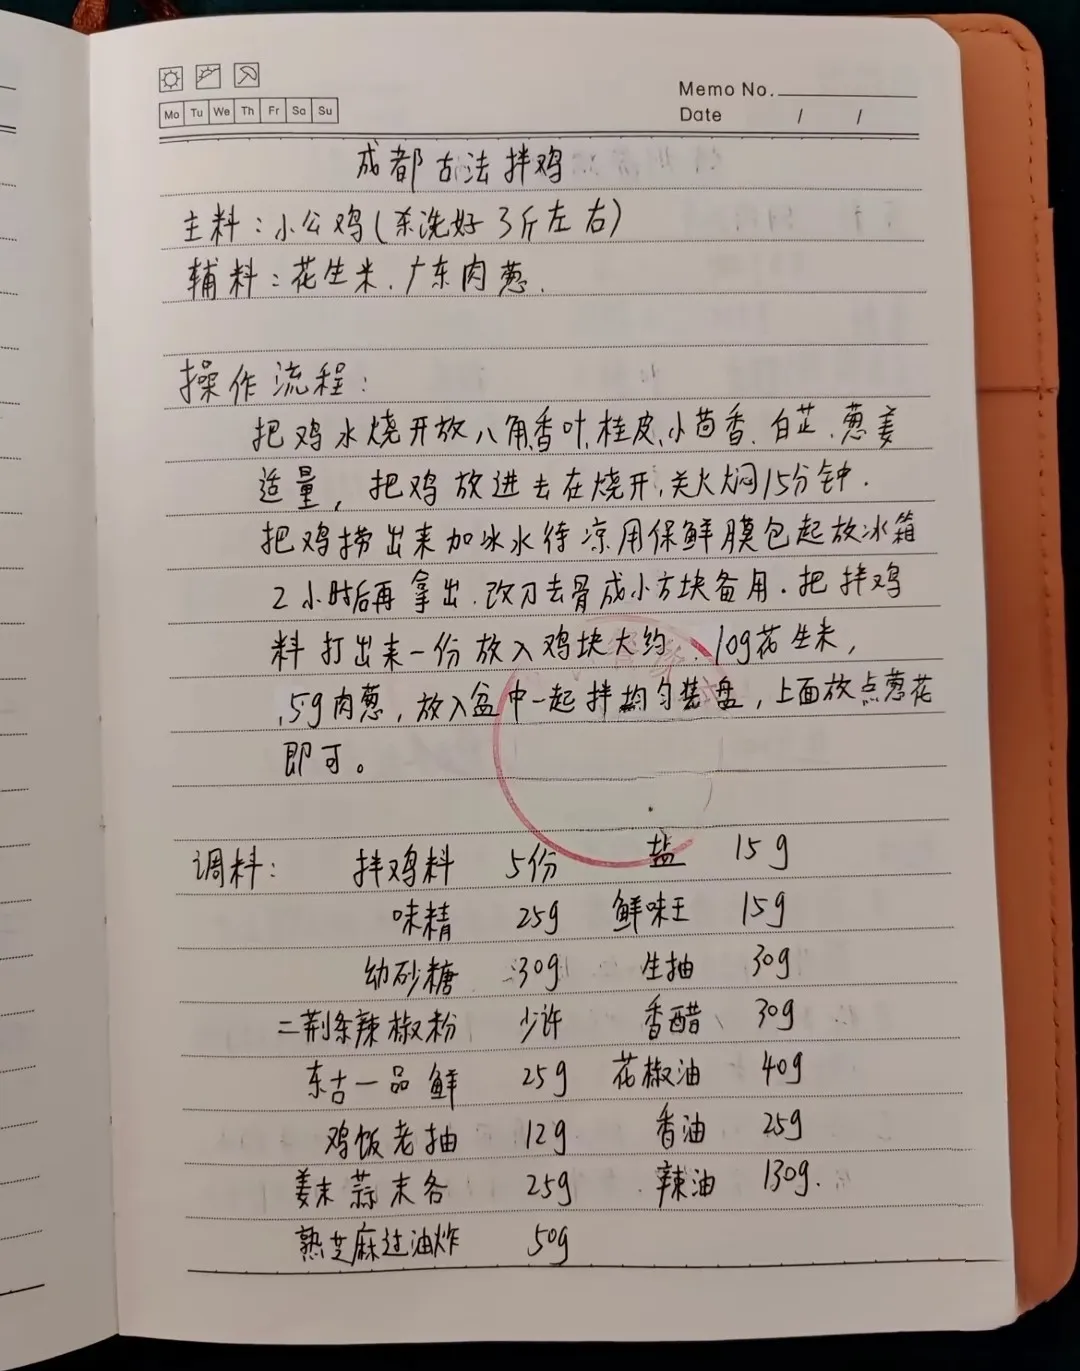 Memo No.
Mo Tu We Th Fr Sa Su
Date / /
成都古法拌鸡
主料：小公鸡(杀洗好3斤左右)
辅料：花生米、广东肉葱.
操作流程：
把鸡水烧开放八角,香叶,桂皮,小茴香、白芷、葱姜
适量，把鸡放进去在烧开,关火焖15分钟.
把鸡捞出来加冰水待凉用保鲜膜包起放冰箱
2小时后再拿出.改刀去骨成小方块备用.把拌鸡
料打出来一份放入鸡块大约.10g花生米，
.5g肉葱，放入盆中一起拌均匀装盘，上面放点葱花
即可。
调料： 拌鸡料 5份 盐 15g
味精 25g 鲜味王 15g
幼砂糖 30g 生抽 30g
二荆条辣椒粉 少许 香醋 30g
东古一品鲜 25g 花椒油 40g
鸡饭老抽 12g 香油 25g
姜末蒜末各 25g 辣油 130g.
熟芝麻过油炸 50g